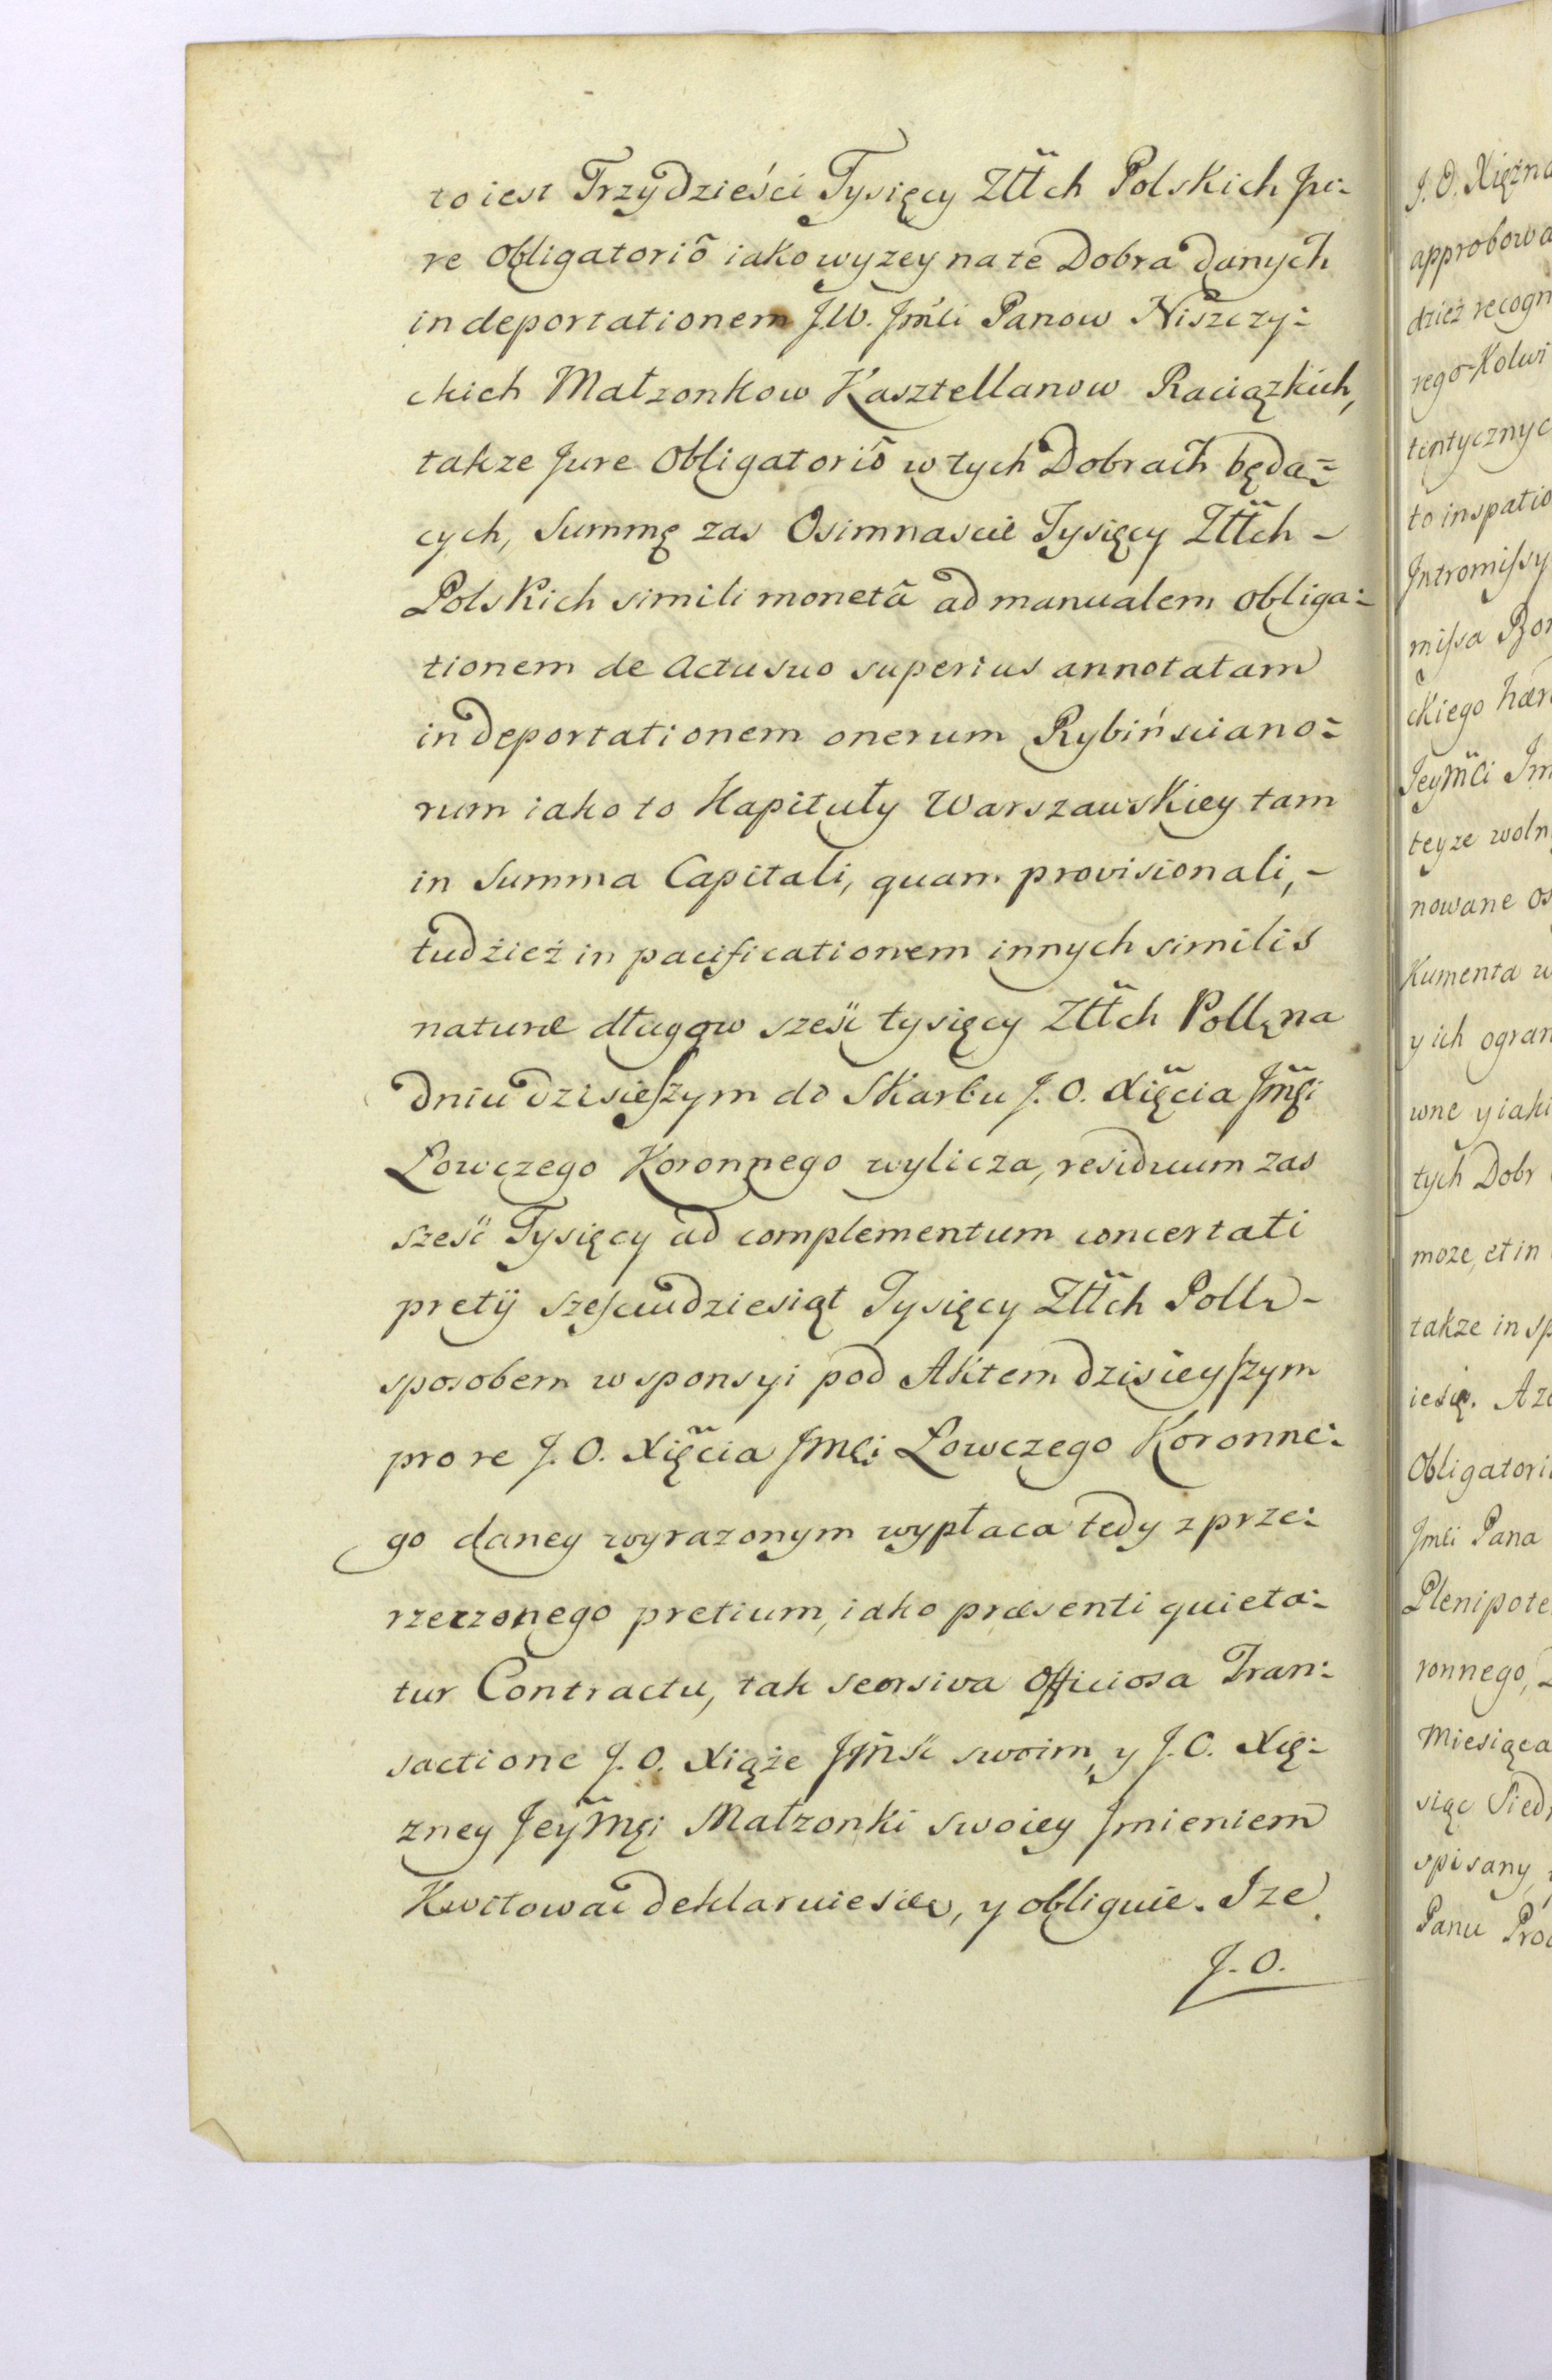 to iest Trzydzieści Tysięcy Złtch Polskich Ju:
re Obligatoriō iako wyzey na te Dobra danych
in deportationem J.W. Jmci Panow Niszczy:
ckich Małzonkow Kasztellanow Raciązkich,
takze Jure Obligatoriō w tych Dobrach będą=
cych, Summę zas Osimnascie Tysięcy Złtch -
Polskich simili monetâ ad manualem obliga:
tionem de Actu suo superius annotatam
in deportationem onerum Rybińsciano=
rum iako to Kapituły Warszawskiey tam
in Summa Capitali, quam provisionali, -
tudźież in pacificationem innych similis
naturæ długow sześć tysięcy Złtch Poll: na
dniu dzisieszym do Skarbu J. O. Xięcia Jmci
Łowczego Koronnego wylicza, residuum zas
sześć Tysięcy ad complementum concertati
pretij szesciudziesiąt Tysięcy Złtch Poll: -
sposobem wsponsyi pod Aktem dzisieyszym
pro re J. O. Xięcia Jmci Łowczego Koronne:
go daney wyrazonym wypłaca tedy z prze:
rzeczonego pretium, iako præsenti quieta:
tur Contractu, tak seorsiva Officiosa Tran:
sactione J. O. Xiąże Jmść swoim, y J. O. Xię:
zney Jeymci Małzonki swoiey Jmieniem
Kwitować deklaruie się, y obliguie. Ize
J. O.
J. O. Xiężna
approbowa
dzież recogn
rego-Kolwi
tentycznyc
to in spatio
Intromissy
missa Bor
ckiego hær
Jeymci Im
teyze woln
nowane os
kumenta w
y ich ogran
wne y iaki
tych Dobr
moze, et in
takze in sp
ie się. Aze
Obligatori
Jmci Pana
Plenipote
ronnego,
Miesiąca
siąc Sied
spisany,
Panu Pro